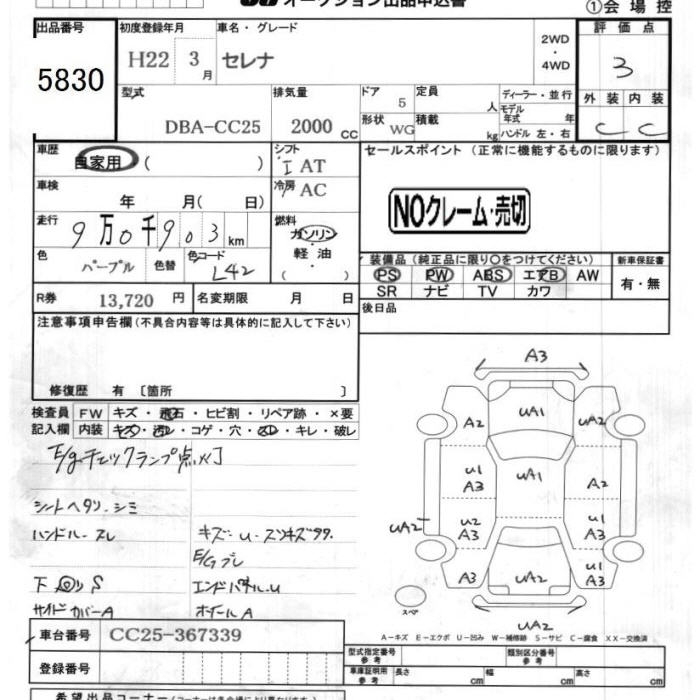 オークション出品申込書
①会場控
出品番号
5830
初度登録年月
H22 3月
車名・グレード
セレナ
2WD
・
4WD
評価点
3
型式
DBA-CC25
排気量
2000 CC
ドア
5
形状
WG
定員
人
積載
kg
ディーラー・並行
モデル
年式 年
ハンドル 左・右
外装 内装
C C
車歴
自家用 ( )
シフト
I AT
車検
年 月( 日)
冷房
AC
走行
9万0千903km
燃料
ガソリン
・
軽油
( )
色
パープル
色替
色コード
L42
R券
13,720 円
名変期限 月 日
セールスポイント (正常に機能するものに限ります)
NOクレーム・売切
装備品 (純正品に限り○をつけてください)
新車保証書
PS PW ABS エアB AW
有・無
SR ナビ TV カワ
後日品
注意事項申告欄 (不具合内容等は具体的に記入して下さい)
修復歴 有 〔箇所 〕
検査員
記入欄
FW キズ・飛石・ヒビ割・リペア跡・×要
内装 キズ・汚レ・コゲ・穴・スレ・キレ・破レ
E/gチェックランプ点灯
シートヘタリ・シミ
ハンドル・スレ
キズ・U・スリキズ多々
E/Gブレ
下回りS
エンドパネルU
サイドカバーA
ホイールA
A3
A2
UA1
UA2
U1
A3
UA1
A2
UA2
U2
A3
U1
A3
A3
UA2
U1
A3
スペア
UA2
A－キズ E－エクボ U－凹み W－補修跡 S－サビ C－腐食 XX－交換済
車台番号
CC25-367339
登録番号
型式指定番号
参考
類別区分番号
参考
車庫証明用
参考
長さ cm
幅 cm
高さ cm
希望出品コーナー